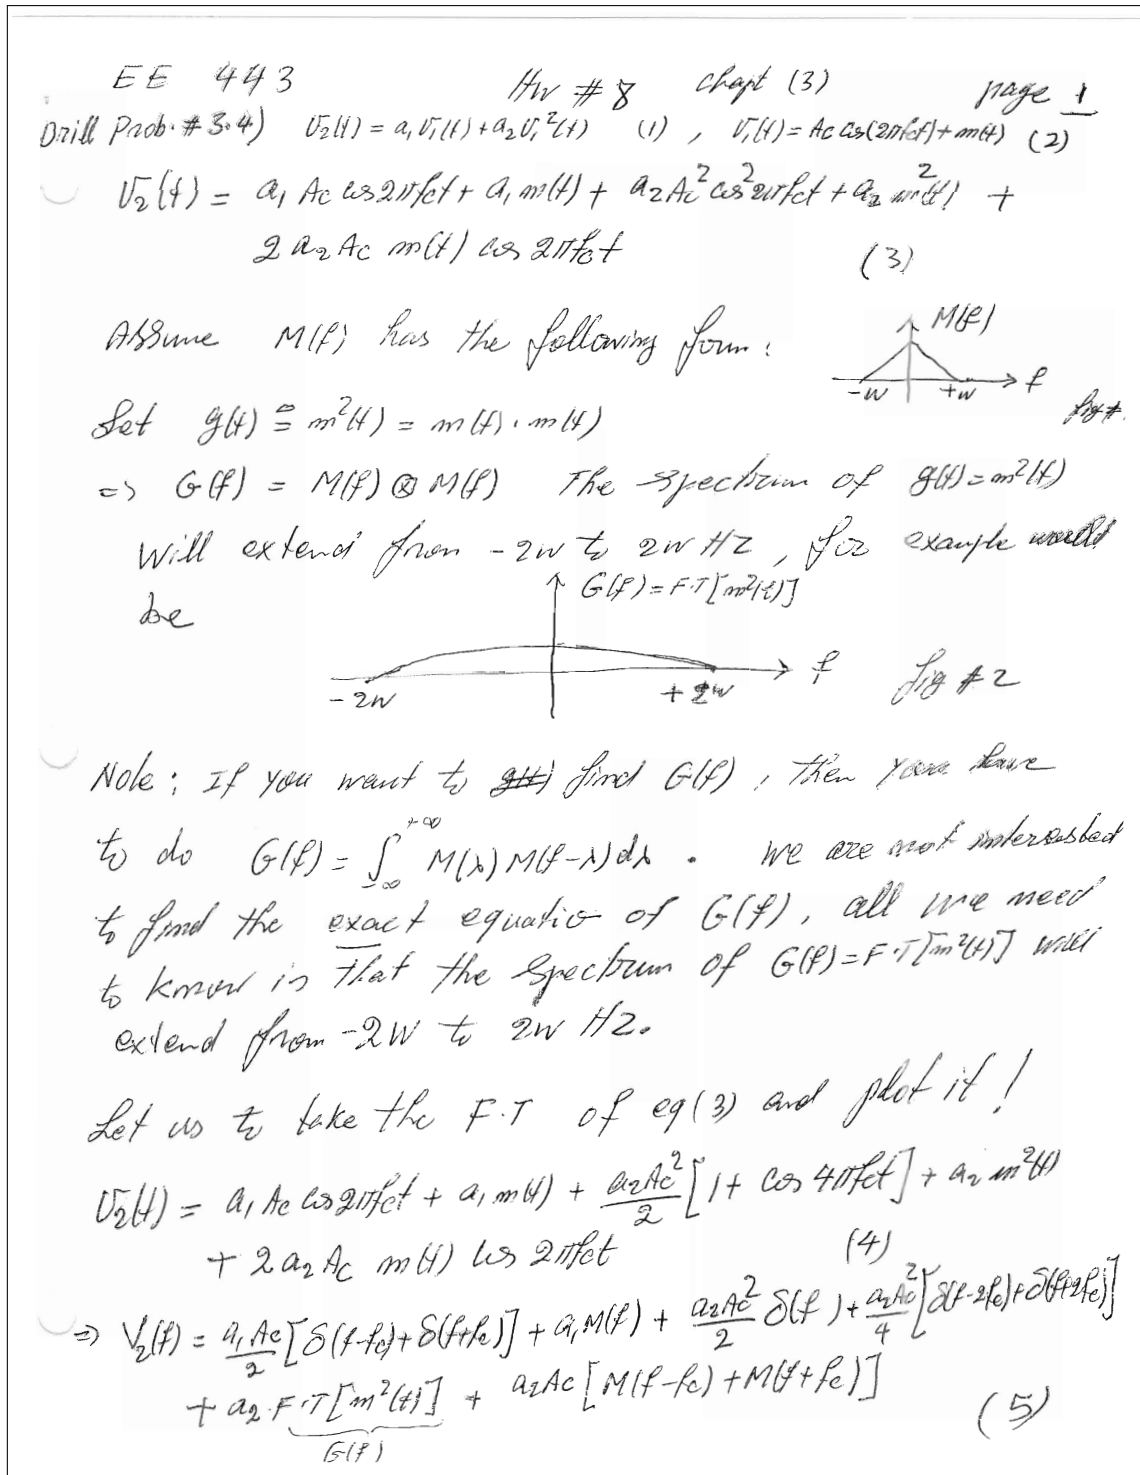 EE 443 HW #8 chapt (3) page 1
Drill Prob. #3.4) v₂(t) = a₁v₁(t) + a₂v₁²(t) (1) , v₁(t) = Ac cos(2πfct) + m(t) (2)
v₂(t) = a₁ Ac cos 2πfct + a₁ m(t) + a₂Ac² cos² 2πfct + a₂ m²(t) +
2 a₂ Ac m(t) cos 2πfct (3)
Assume M(f) has the following form :
M(f)
-w +w f
fig #
Let g(t) ≜ m²(t) = m(t) . m(t)
=> G(f) = M(f) ⊗ M(f) The spectrum of g(t) = m²(t)
will extend from -2w to 2w HZ , for example would
be
G(f) = F.T[m²(t)]
-2w +2w f fig #2
Note : If you want to find G(f) , then you have
to do G(f) = ∫₋∞⁺∞ M(λ) M(f-λ) dλ . we are not interested
to find the exact equatio of G(f), all we need
to know is that the spectrum of G(f) = F.T[m²(t)] will
extend from -2w to 2w HZ.
Let us to take the F.T of eq(3) and plot it !
v₂(t) = a₁ Ac cos 2πfct + a₁ m(t) + a₂Ac²/2 [1 + cos 4πfct] + a₂ m²(t)
+ 2 a₂ Ac m(t) cos 2πfct (4)
=> V₂(f) = a₁Ac/2 [δ(f-fc) + δ(f+fc)] + a₁M(f) + a₂Ac²/2 δ(f) + a₂Ac²/4 [δ(f-2fc) + δ(f+2fc)]
+ a₂ F.T[m²(t)] + a₂Ac [M(f-fc) + M(f+fc)] (5)
G(f)